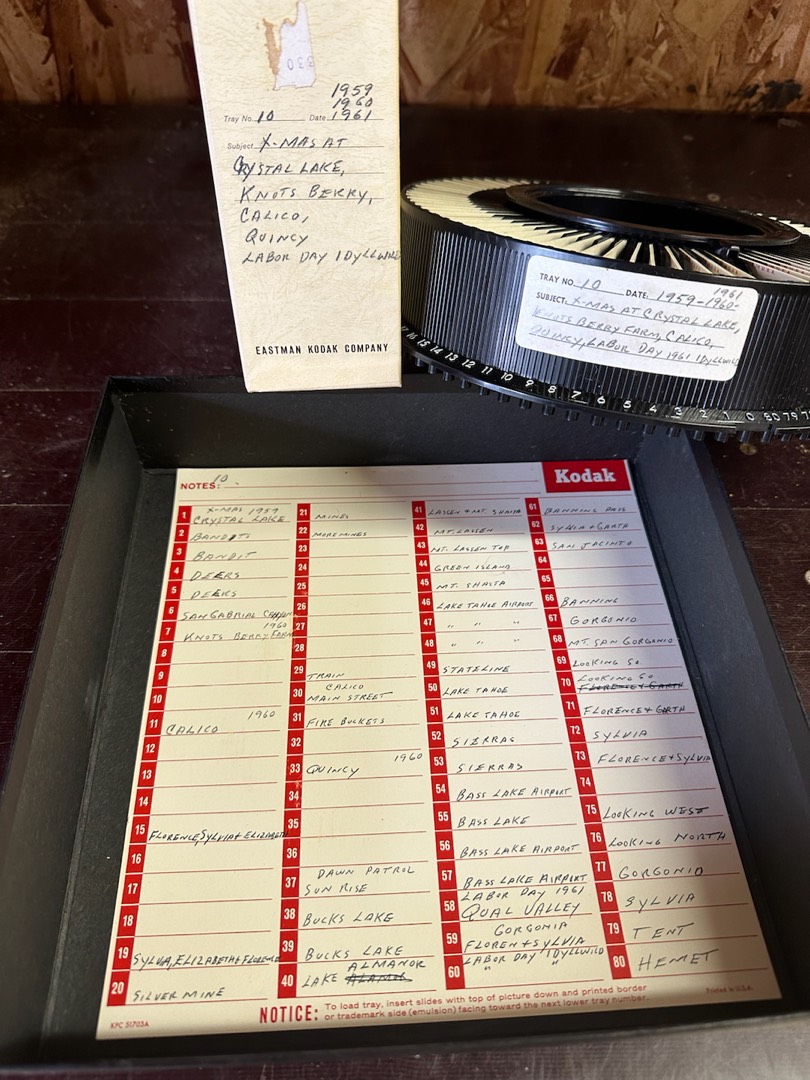 330
1959
1960
Tray No. 10 Date 1961
Subject X-MAS AT
CRYSTAL LAKE,
KNOTS BERRY,
CALICO,
QUINCY
LABOR DAY IDYLLWILD
EASTMAN KODAK COMPANY
TRAY NO. 10 DATE: 1959-1960- 1961
SUBJECT: X-MAS AT CRYSTAL LAKE,
KNOTS BERRY FARM, CALICO,
QUINCY, LABOR DAY 1961 IDYLLWILD
16 15 14 13 12 11 10 9 8 7 6 5 4 3 2 1 0 80 79
NOTES: 10
Kodak
1 X-MAS 1959
CRYSTAL LAKE
2 BANDITS
3 BANDIT
4 DEERS
5 DEERS
6 SAN GABRIAL CANYON
7 1960
KNOTS BERRY FARM
8
9
10
11 1960
CALICO
12
13
14
15 FLORENCE, SYLVIA & ELIZABETH
16
17
18
19 SYLVA, ELIZABETH & FLORENCE
20 SILVER MINE
21 MINES
22 MORE MINES
23
24
25
26
27
28
29 TRAIN
30 CALICO
MAIN STREET
31 FIRE BUCKETS
32
33 QUINCY 1960
34
35
36
37 DAWN PATROL
SUN RISE
38 BUCKS LAKE
39 BUCKS LAKE
40 ALMANOR
LAKE ALAMOR
41 LASSEN & MT. SHASTA
42 MT. LASSEN
43 MT. LASSEN TOP
44 GREEN ISLAND
45 MT. SHASTA
46 LAKE TAHOE AIRPORT
47 " " "
48 " " "
49 STATELINE
50 LAKE TAHOE
51 LAKE TAHOE
52 SIERRAS
53 SIERRAS
54 BASS LAKE AIRPORT
55 BASS LAKE
56 BASS LAKE AIRPORT
57 BASS LAKE AIRPORT
58 LABOR DAY 1961
QUAL VALLEY
59 GORGONIA
FLOREN & SYLVIA
60 LABOR DAY IDYLLWILD
" "
61 BANNING PASS
62 SYLVIA & GARTH
63 SAN JACINTO
64
65
66 BANNING
67 GORGONIO
68 MT. SAN GORGONIO
69 LOOKING SO.
70 LOOKING SO
FLORENCE & GARTH
71 FLORENCE & GARTH
72 SYLVIA
73 FLORENCE & SYLVIA
74
75 LOOKING WEST
76 LOOKING NORTH
77 GORGONIO
78 SYLVIA
79 TENT
80 HEMET
NOTICE: To load tray, insert slides with top of picture down and printed border
or trademark side (emulsion) facing toward the next lower tray number.
KPC 51703A
Printed in U.S.A.